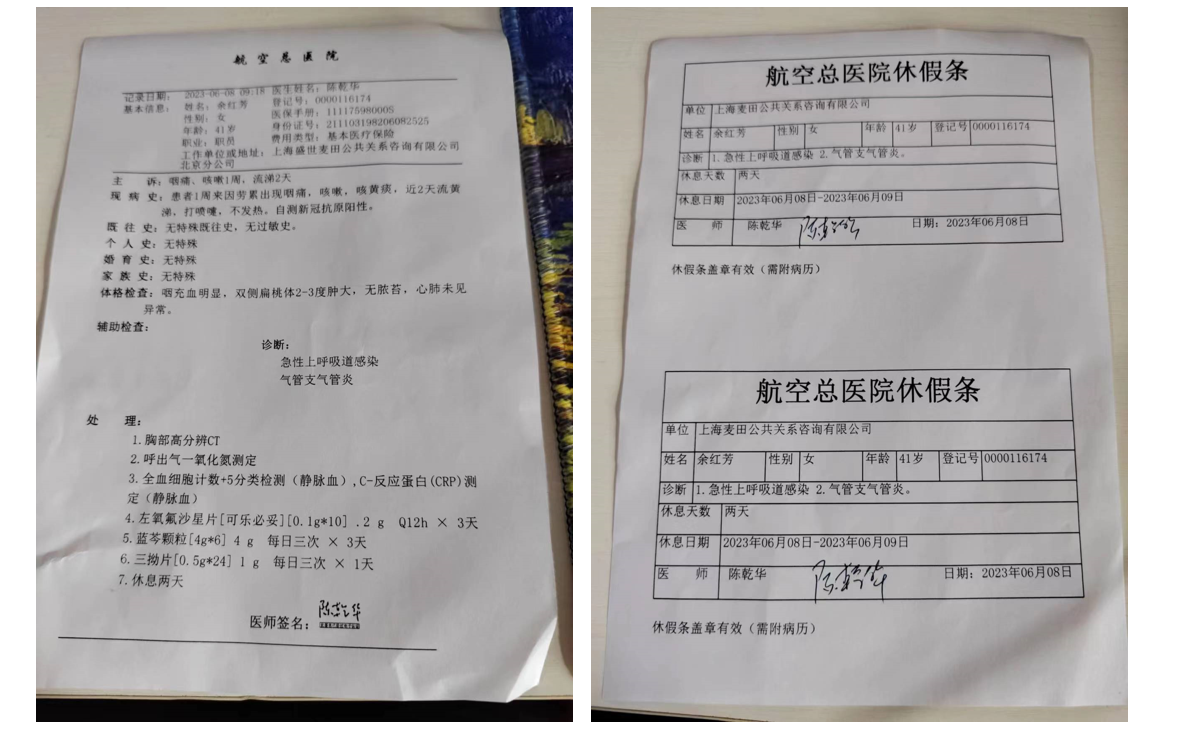 航空总医院
记录日期： 2023-06-08 09:18 医生姓名：陈乾华
基本信息： 姓名：余红芳 登记号：0000116174
性别：女 医保手册：111175980005
年龄：41岁 身份证号：211103198206082525
职业：职员 费用类型：基本医疗保险
工作单位或地址：上海盛世麦田公共关系咨询有限公司
北京分公司
主 诉：咽痛、咳嗽1周，流涕2天
现 病 史：患者1周来因劳累出现咽痛，咳嗽，咳黄痰，近2天流黄
涕，打喷嚏，不发热。自测新冠抗原阳性。
既 往 史：无特殊既往史，无过敏史。
个 人 史：无特殊
婚 育 史：无特殊
家 族 史：无特殊
体格检查：咽充血明显，双侧扁桃体2-3度肿大，无脓苔，心肺未见
异常。
辅助检查：
诊断：
急性上呼吸道感染
气管支气管炎
处 理：
1.胸部高分辨CT
2.呼出气一氧化氮测定
3.全血细胞计数+5分类检测（静脉血）,C-反应蛋白(CRP)测
定（静脉血）
4.左氧氟沙星片[可乐必妥][0.1g*10] .2 g Q12h × 3天
5.蓝芩颗粒[4g*6] 4 g 每日三次 × 3天
6.三拗片[0.5g*24] 1 g 每日三次 × 1天
7.休息两天
医师签名：陈乾华
航空总医院休假条
单位 上海麦田公共关系咨询有限公司
姓名 余红芳 性别 女 年龄 41岁 登记号 0000116174
诊断 1.急性上呼吸道感染 2.气管支气管炎。
休息天数 两天
休息日期 2023年06月08日-2023年06月09日
医 师 陈乾华 陈乾华 日期：2023年06月08日
休假条盖章有效（需附病历）
航空总医院休假条
单位 上海麦田公共关系咨询有限公司
姓名 余红芳 性别 女 年龄 41岁 登记号 0000116174
诊断 1.急性上呼吸道感染 2.气管支气管炎。
休息天数 两天
休息日期 2023年06月08日-2023年06月09日
医 师 陈乾华 陈乾华 日期：2023年06月08日
休假条盖章有效（需附病历）